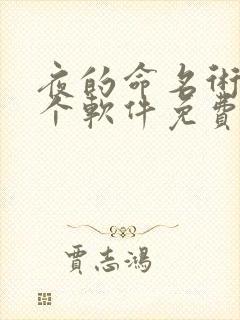 夜的命名術
个軟件免費
賈志鴻